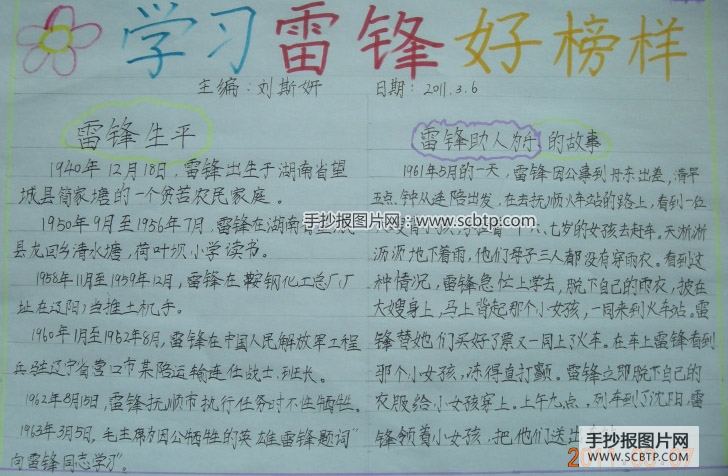 学习雷锋好榜样
主编：刘斯妍 日期：2011.3.6
雷锋生平
1940年12月18日，雷锋出生于湖南省望
城县简家塘的一个贫苦农民家庭。
1950年9月至1956年7月，雷锋在湖南省
县龙回乡清水塘，荷叶坝小学读书。
1958年11月至1959年12月，雷锋在鞍钢化工总厂（厂
址在辽阳）当推土机手。
1960年1月至1962年8月，雷锋在中国人民解放军工程
兵驻辽宁省营口市某陪运输连任战士，班长。
1962年8月15日，雷锋抚顺市执行任务时不牺牲。
1963年3月5日，毛主席为因公牺牲的英雄雷锋题词“
向雷锋同志学习”。
雷锋助人为乐的故事
1961年5月的一天，雷锋因公事到丹东出差，清早
五点钟从连陪出发，在去抚顺火车站的路上，看到一位
七岁的女孩去赶车。天淅淅
沥沥地下着雨，他们母子三人都没有穿雨衣。看到这
种情况，雷锋急忙上学去，脱下自己的雨衣，披在
大嫂身上，马上背起那个小女孩，一同来到火车站。雷
锋替她们买好了票又一同上了火车。在车上雷锋看到
那个小女孩，冻得直打颤。雷锋立即脱下自己的
衣服给小女孩穿上。上午九点，列车到了沈阳，雷
锋领着小女孩，把他们送出
手抄报图片网：www.scbtp.com
手抄报图片网
WWW.SCBTP.COM